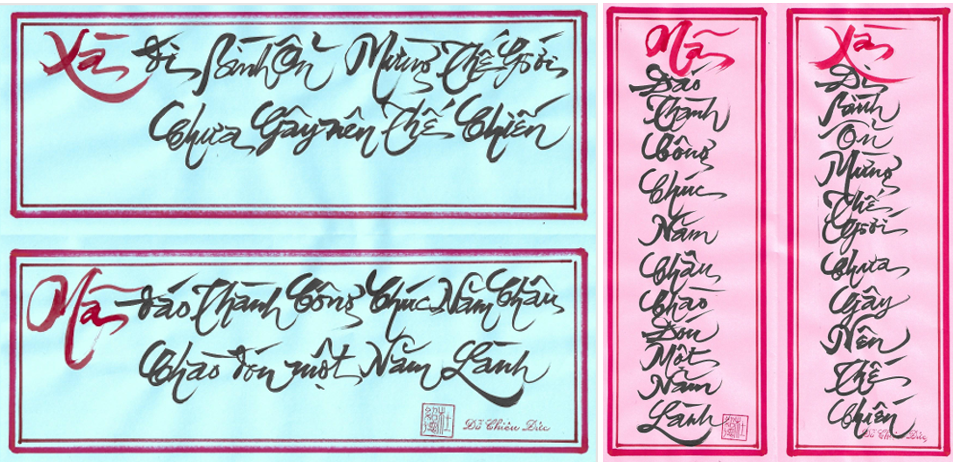 Xà đi Bình Ổn Mừng Thế Giới
Chưa Gây nên Thế Chiến
Mã đáo Thành Công Chúc Năm Châu
Chào đón một Năm Lành
Đỗ Chiêu Đức
Mã
Đáo
Thành
Công
Chúc
Năm
Châu
Chào
Đón
Một
Năm
Lành
Xà
Đi
Bình
Ổn
Mừng
Thế
Giới
Chưa
Gây
Nên
Thế
Chiến
Đỗ Chiêu Đức